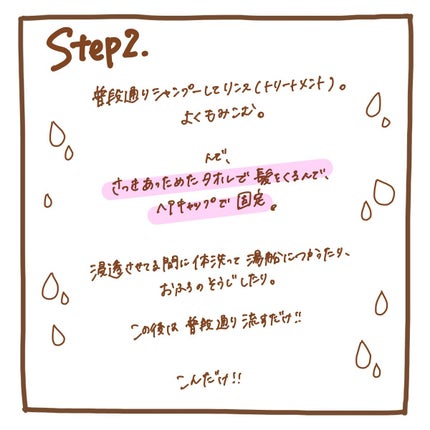 Step2.
普段通りシャンプーしてリンス(トリートメント)。
よくもみこむ。
んで、
さっきあっためたタオルで髪をくるんで、
ヘアキャップで固定。
浸透させてる間に体洗って湯船につかったり、
おふろのそうじしたり。
この後は普段通り流すだけ!!
こんだけ!!